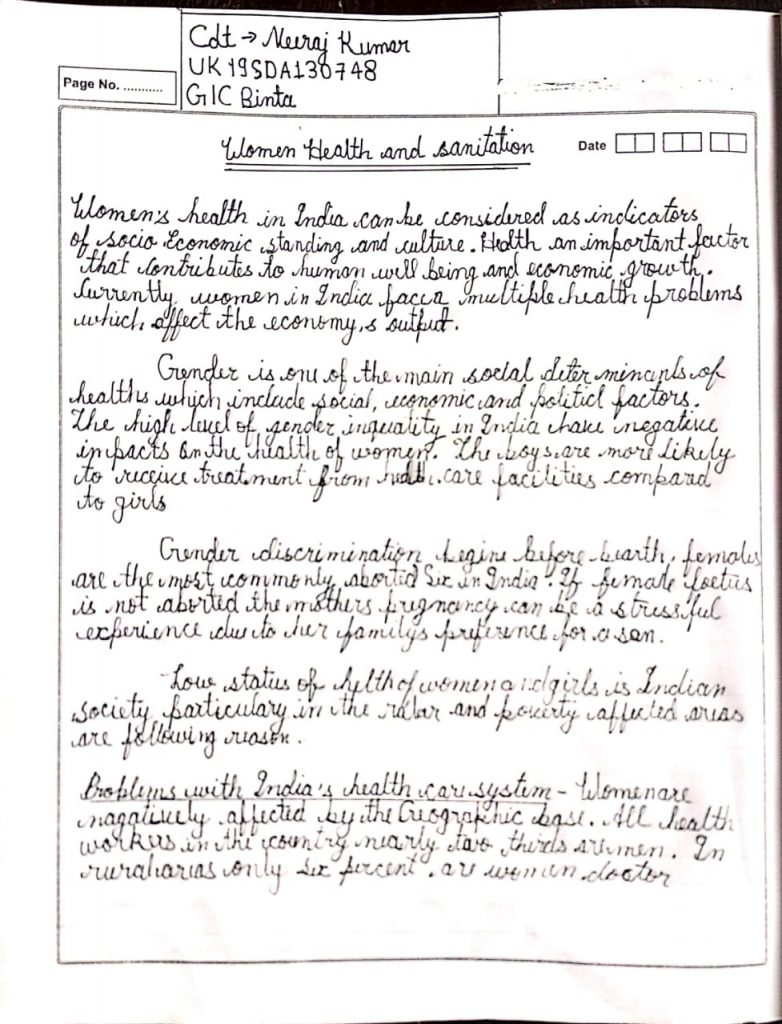 Cdt → Neeraj Kumar
UK19SDA130748
GIC Binta
Page No. ...........
Women Health and sanitation
Date
Women's health in India can be considered as indicators
of socio Economic standing and culture. Health an important factor
that contributes to human well being and economic growth.
Currently women in India face a multiple health problems
which, affect the economy,s output.
Gender is one of the main social deter minants of
healths which include social, economic and politicl factors.
The high level of gender inquality in India have negative
impacts on the health of women. The boys are more likely
to receive treatment from health care facilities compard
to girls
Gender discrimination begins before bearth, females
are the most commonly aborted Six in India. If female foetus
is not aborted the mothers pregnancy can be a stressful
experience due to her familys preference for a son.
Low status of hylth of women and girls is Indian
society particulary in the rular and poverty affected areas
are following reason.
Problems with India's health care system - Women are
nagatively affected by the Geographic base. All health
workers in the country nearly two thirds are men. In
rural areas only six percent. are women doctor